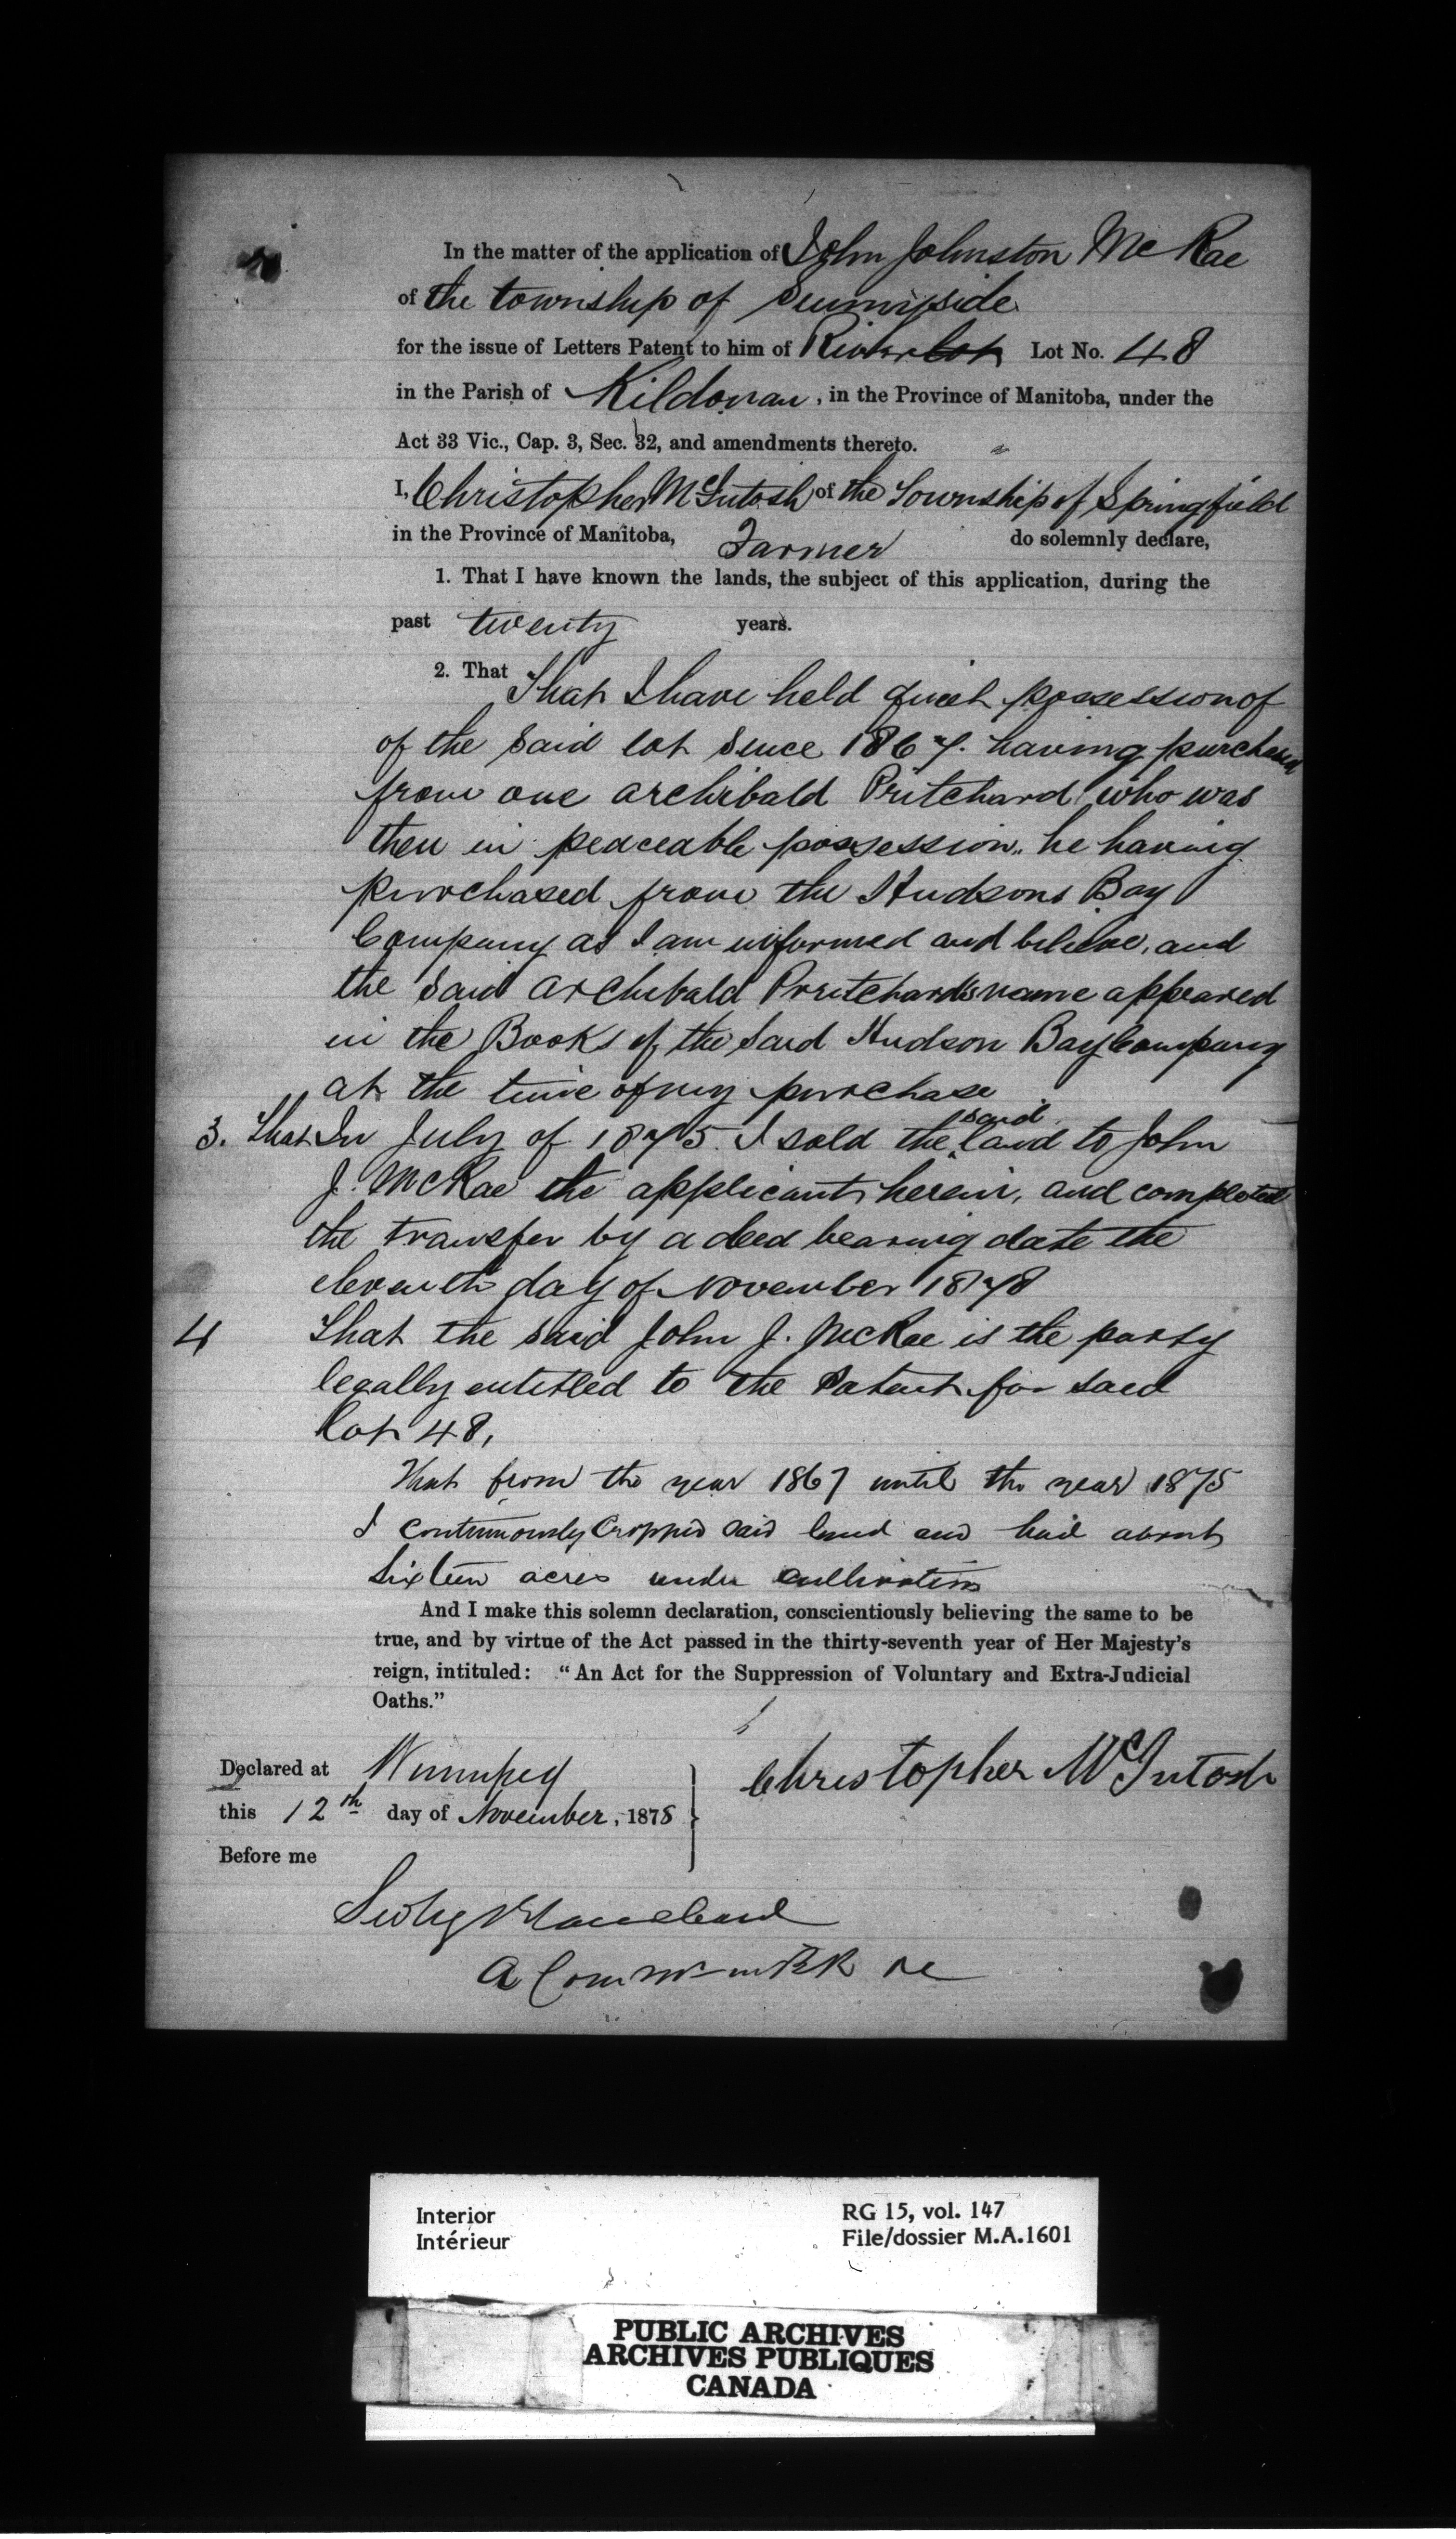 In the matter of the application of John Johnston McRae
of the township of Sunnyside
for the issue of Letters Patent to him of River lot Lot No. 48
in the Parish of Kildonan, in the Province of Manitoba, under the
Act 33 Vic., Cap. 3, Sec. 32, and amendments thereto.
I, Christopher McIntosh of the Township of Springfield
in the Province of Manitoba, Farmer do solemnly declare,
1. That I have known the lands, the subject of this application, during the
past twenty years.
2. That That I have held quiet possession of
of the said lot since 1867. having purchased
from one Archibald Pritchard who was
then in peaceable possession, he having
purchased from the Hudsons Bay
Company as I am informed and believe, and
the said Archibald Pritchard's name appeared
in the Books of the said Hudson Bay Company
at the time of my purchase
3. That In July of 1875 I sold the said land to John
J. McRae the applicant herein, and completed
the transfer by a deed bearing date the
eleventh day of November 1878
4 That the said John J. McRae is the party
legally entitled to the Patent for said
Lot 48,
That from the year 1867 until the year 1875
I continuously cropped said land and had about
sixteen acres under cultivation
And I make this solemn declaration, conscientiously believing the same to be
true, and by virtue of the Act passed in the thirty-seventh year of Her Majesty's
reign, intituled: "An Act for the Suppression of Voluntary and Extra-Judicial
Oaths."
Declared at Winnipeg
this 12th day of November, 1878
Christopher McIntosh
Before me
Sedley Blanchard
A Comm in BR &c
Interior
Intérieur
RG 15, vol. 147
File/dossier M.A.1601
PUBLIC ARCHIVES
ARCHIVES PUBLIQUES
CANADA